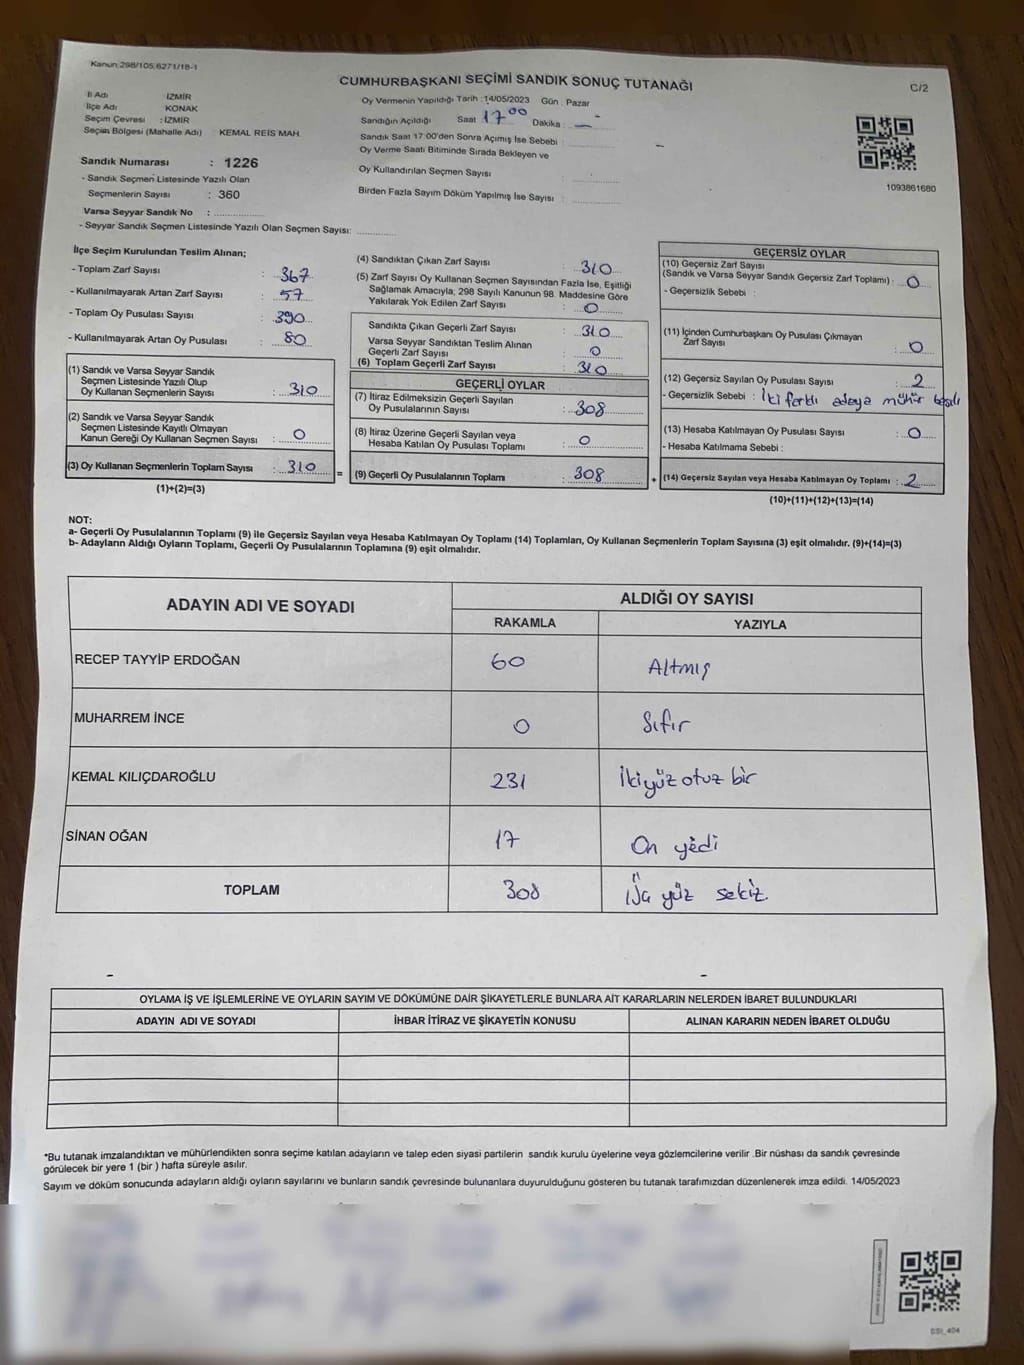 Kanun:298/105,6271/18-1
CUMHURBAŞKANI SEÇİMİ SANDIK SONUÇ TUTANAĞI
C/2
İl Adı İZMİR
İlçe Adı KONAK
Seçim Çevresi : İZMİR
Seçim Bölgesi (Mahalle Adı) KEMAL REİS MAH.
Sandık Numarası : 1226
- Sandık Seçmen Listesinde Yazılı Olan
Seçmenlerin Sayısı : 360
Varsa Seyyar Sandık No : ................
- Seyyar Sandık Seçmen Listesinde Yazılı Olan Seçmen Sayısı: ............
Oy Vermenin Yapıldığı Tarih :14/05/2023 Gün : Pazar
Sandığın Açıldığı Saat 17 00 Dakika : —
Sandık Saat 17:00'den Sonra Açmış İse Sebebi :
Oy Verme Saati Bitiminde Sırada Bekleyen ve
Oy Kullandırılan Seçmen Sayısı :
Birden Fazla Sayım Döküm Yapılmış İse Sayısı :
1093861680
İlçe Seçim Kurulundan Teslim Alınan;
- Toplam Zarf Sayısı : 367
- Kullanılmayarak Artan Zarf Sayısı : 57
- Toplam Oy Pusulası Sayısı : 390
- Kullanılmayarak Artan Oy Pusulası : 80
(1) Sandık ve Varsa Seyyar Sandık
Seçmen Listesinde Yazılı Olup
Oy Kullanan Seçmenlerin Sayısı : 310
(2) Sandık ve Varsa Seyyar Sandık
Seçmen Listesinde Kayıtlı Olmayan
Kanun Gereği Oy Kullanan Seçmen Sayısı : 0
(3) Oy Kullanan Seçmenlerin Toplam Sayısı : 310
(1)+(2)=(3)
(4) Sandıktan Çıkan Zarf Sayısı : 310
(5) Zarf Sayısı Oy Kullanan Seçmen Sayısından Fazla İse, Eşitliği
Sağlamak Amacıyla, 298 Sayılı Kanunun 98. Maddesine Göre
Yakılarak Yok Edilen Zarf Sayısı : 0
Sandıkta Çıkan Geçerli Zarf Sayısı : 310
Varsa Seyyar Sandıktan Teslim Alınan
Geçerli Zarf Sayısı : 0
(6) Toplam Geçerli Zarf Sayısı : 310
GEÇERLİ OYLAR
(7) İtiraz Edilmeksizin Geçerli Sayılan
Oy Pusulalarının Sayısı : 308
(8) İtiraz Üzerine Geçerli Sayılan veya
Hesaba Katılan Oy Pusulası Toplamı : 0
= (9) Geçerli Oy Pusulalarının Toplamı : 308 +
GEÇERSİZ OYLAR
(10) Geçersiz Zarf Sayısı
(Sandık ve Varsa Seyyar Sandık Geçersiz Zarf Toplamı) : 0
- Geçersizlik Sebebi :
(11) İçinden Cumhurbaşkanı Oy Pusulası Çıkmayan
Zarf Sayısı : 0
(12) Geçersiz Sayılan Oy Pusulası Sayısı : 2
- Geçersizlik Sebebi : İki farklı adaya mühür basılı
(13) Hesaba Katılmayan Oy Pusulası Sayısı : 0
- Hesaba Katılmama Sebebi :
(14) Geçersiz Sayılan veya Hesaba Katılmayan Oy Toplamı : 2
(10)+(11)+(12)+(13)=(14)
NOT:
a- Geçerli Oy Pusulalarının Toplamı (9) ile Geçersiz Sayılan veya Hesaba Katılmayan Oy Toplamı (14) Toplamları, Oy Kullanan Seçmenlerin Toplam Sayısına (3) eşit olmalıdır. (9)+(14)=(3)
b- Adayların Aldığı Oyların Toplamı, Geçerli Oy Pusulalarının Toplamına (9) eşit olmalıdır.
ADAYIN ADI VE SOYADI ALDIĞI OY SAYISI
RAKAMLA YAZIYLA
RECEP TAYYİP ERDOĞAN 60 Altmış
MUHARREM İNCE 0 Sıfır
KEMAL KILIÇDAROĞLU 231 İkiyüz otuz bir
SİNAN OĞAN 17 On yedi
TOPLAM 308 yüz sekiz.
OYLAMA İŞ VE İŞLEMLERİNE VE OYLARIN SAYIM VE DÖKÜMÜNE DAİR ŞİKAYETLERLE BUNLARA AİT KARARLARIN NELERDEN İBARET BULUNDUKLARI
ADAYIN ADI VE SOYADI İHBAR İTİRAZ VE ŞİKAYETİN KONUSU ALINAN KARARIN NEDEN İBARET OLDUĞU
*Bu tutanak imzalandıktan ve mühürlendikten sonra seçime katılan adayların ve talep eden siyasi partilerin sandık kurulu üyelerine veya gözlemcilerine verilir .Bir nüshası da sandık çevresinde
görülecek bir yere 1 (bir ) hafta süreyle asılır.
Sayım ve döküm sonucunda adayların aldığı oyların sayılarını ve bunların sandık çevresinde bulunanlara duyurulduğunu gösteren bu tutanak tarafımızdan düzenlenerek imza edildi. 14/05/2023
SSI_404